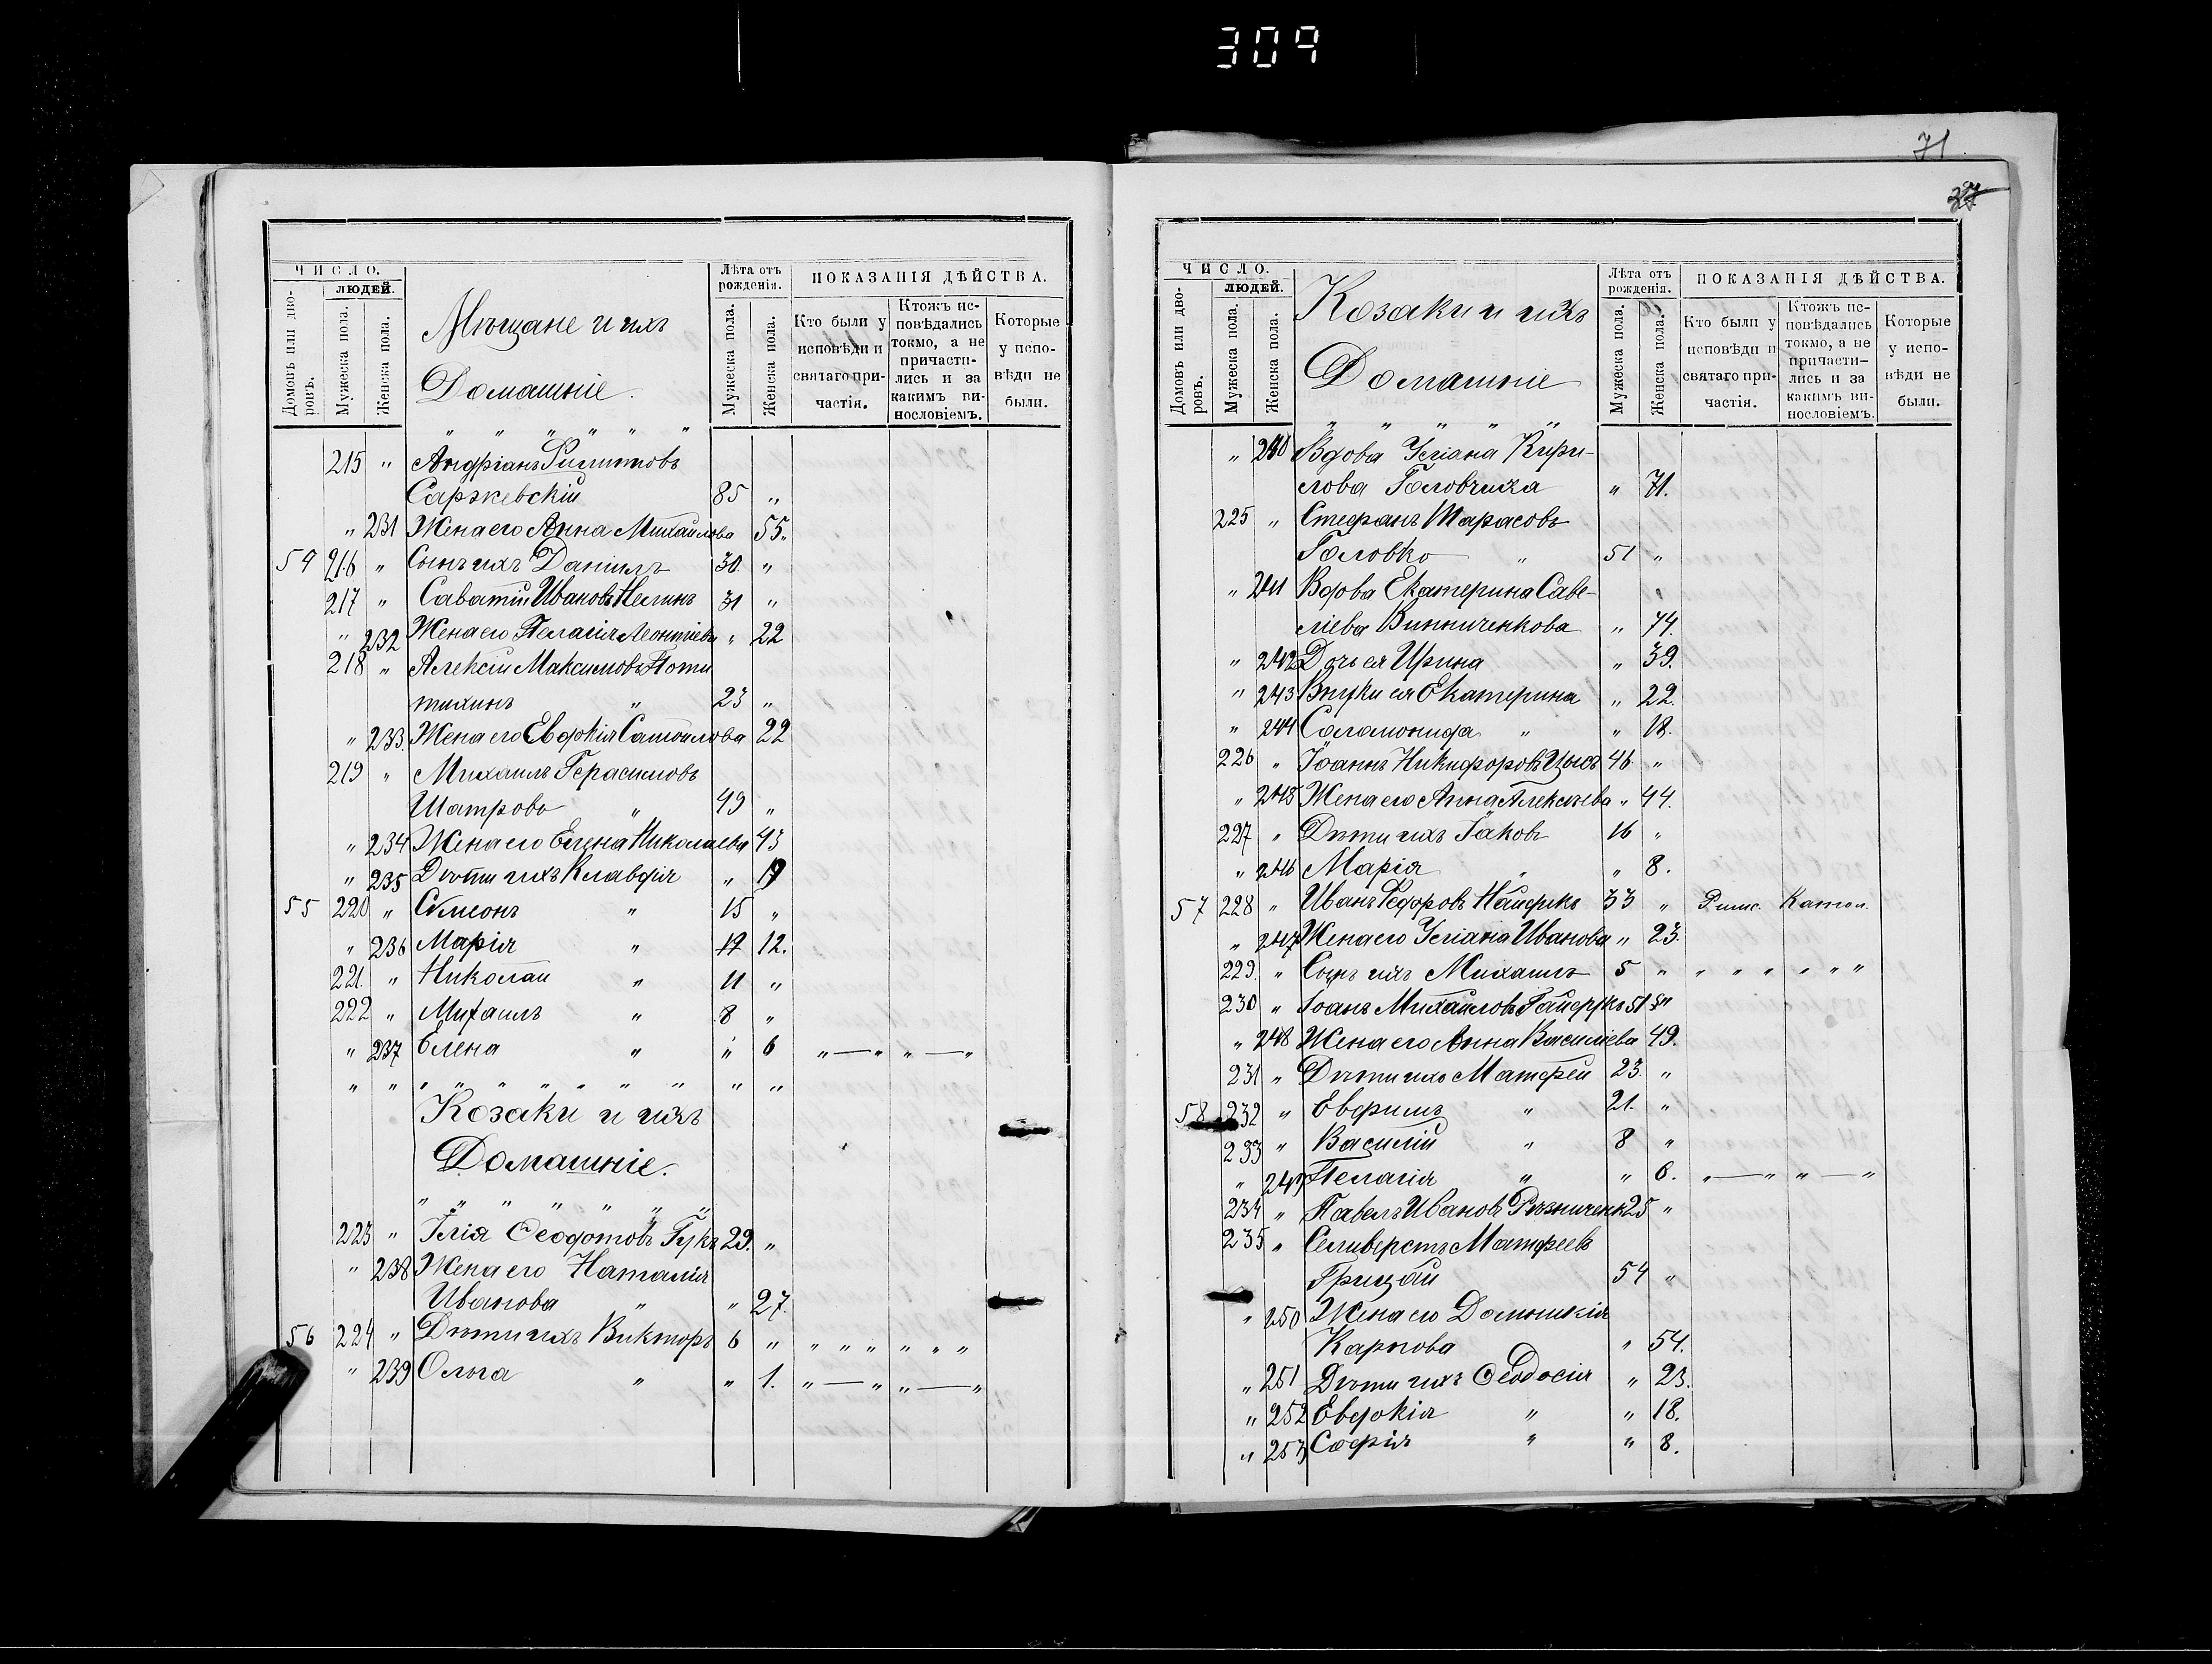 309
71
27
ЧИСЛО.
ЛЮДЕЙ.
Домовъ или дворовъ.
Мужеска пола.
Женска пола.
Мѣщане и ихъ
Домашніе.
Лѣта отъ рожденія.
Мужеска пола.
Женска пола.
ПОКАЗАНІЯ ДѢЙСТВА.
Кто были у исповѣди и святаго причастія.
Ктожъ исповѣдались токмо, а не причастились и за какимъ винословіемъ.
Которые у исповѣди не были.
" " " " " "
215 " Андріанъ Филиповъ
Саржевскій 85 "
" 231 Жена его Анна Михаилова 55 "
54 216 " Сынъ ихъ Даніилъ 30 "
217 " Саватій Ивановъ 31 "
" 232 Жена его Пелагія Леонтіева " 22
218 " Алексій Максимовъ Поти
тихинъ " 23 "
" 233. Жена его Евдокія Самоилова 22
219 " Михаилъ Герасимовъ
Шатровъ " 49 "
" 234 Жена его Елена Николаева 43
" 235 Дѣти ихъ Клавдія " 19
55 220 " Симеонъ " 15 "
" 236 Марія " 12 12.
221. " Николай " 11 "
222 " Михаилъ " 8 "
" 237 Елена " " 6 " — " " — "
" " " " " " " " " " "
Козаки и ихъ
Домашніе.
" " " " " "
223 " Ілія Ѳеодотовъ Гукъ 29. "
" 238 Жена его Наталія
Иванова " " 27.
56 224 " Дѣти ихъ Викторъ 6 " " " " " " "
" 239 Ольга " " 1. " — " " — "
ЧИСЛО.
ЛЮДЕЙ.
Домовъ или дворовъ.
Мужеска пола.
Женска пола.
Козаки и ихъ
Домашніе
Лѣта отъ рожденія.
Мужеска пола.
Женска пола.
ПОКАЗАНІЯ ДѢЙСТВА.
Кто были у исповѣди и святаго причастія.
Ктожъ исповѣдались токмо, а не причастились и за какимъ винословіемъ.
Которые у исповѣди не были.
" " " " "
" 240 Вдова Уліана Кири-
лова Головчиха " 71.
225 " Стефанъ Тарасовъ
Головко " 51 "
" 241 Вдова Екатерина Саве-
ліева Винниченкова " 74.
" 242 Дочь ея Ирина " 39.
" 243 Внуки ея Екатерина " 22.
" 244 Саламонида " " 18.
226 " Іоаннъ Никифоровъ 46 "
" 245 Жена его Анна Алексѣева " 44.
227 " Дѣти ихъ Іаковъ 16 "
" 246 Марія " " 8.
57 228 " Иванъ Федоровъ 33 " Римс. Катол.
" 247 Жена его Уліана Иванова " 23.
229. " Сынъ ихъ Михаилъ 5 " " " " " " " "
230 " Іоанъ Михаиловъ 51
" 248 Жена его Анна Василіева 49.
231 " Дѣти ихъ Матфей 23. "
58 232 " Евфимъ " 21. "
233 " Василій " 8 "
" 249 Пелагія " " 6. " — " " — "
234 " Павелъ Ивановъ Рѣзниченк 25 "
235 " Селиверстъ Матфеевъ
Грицай 54 "
" 250 Жена его Домникія
Карпова " 54.
" 251 Дѣти ихъ Ѳеодосія " 23.
" 252 Евдокія " " 18.
" 253 Софія " " 8.